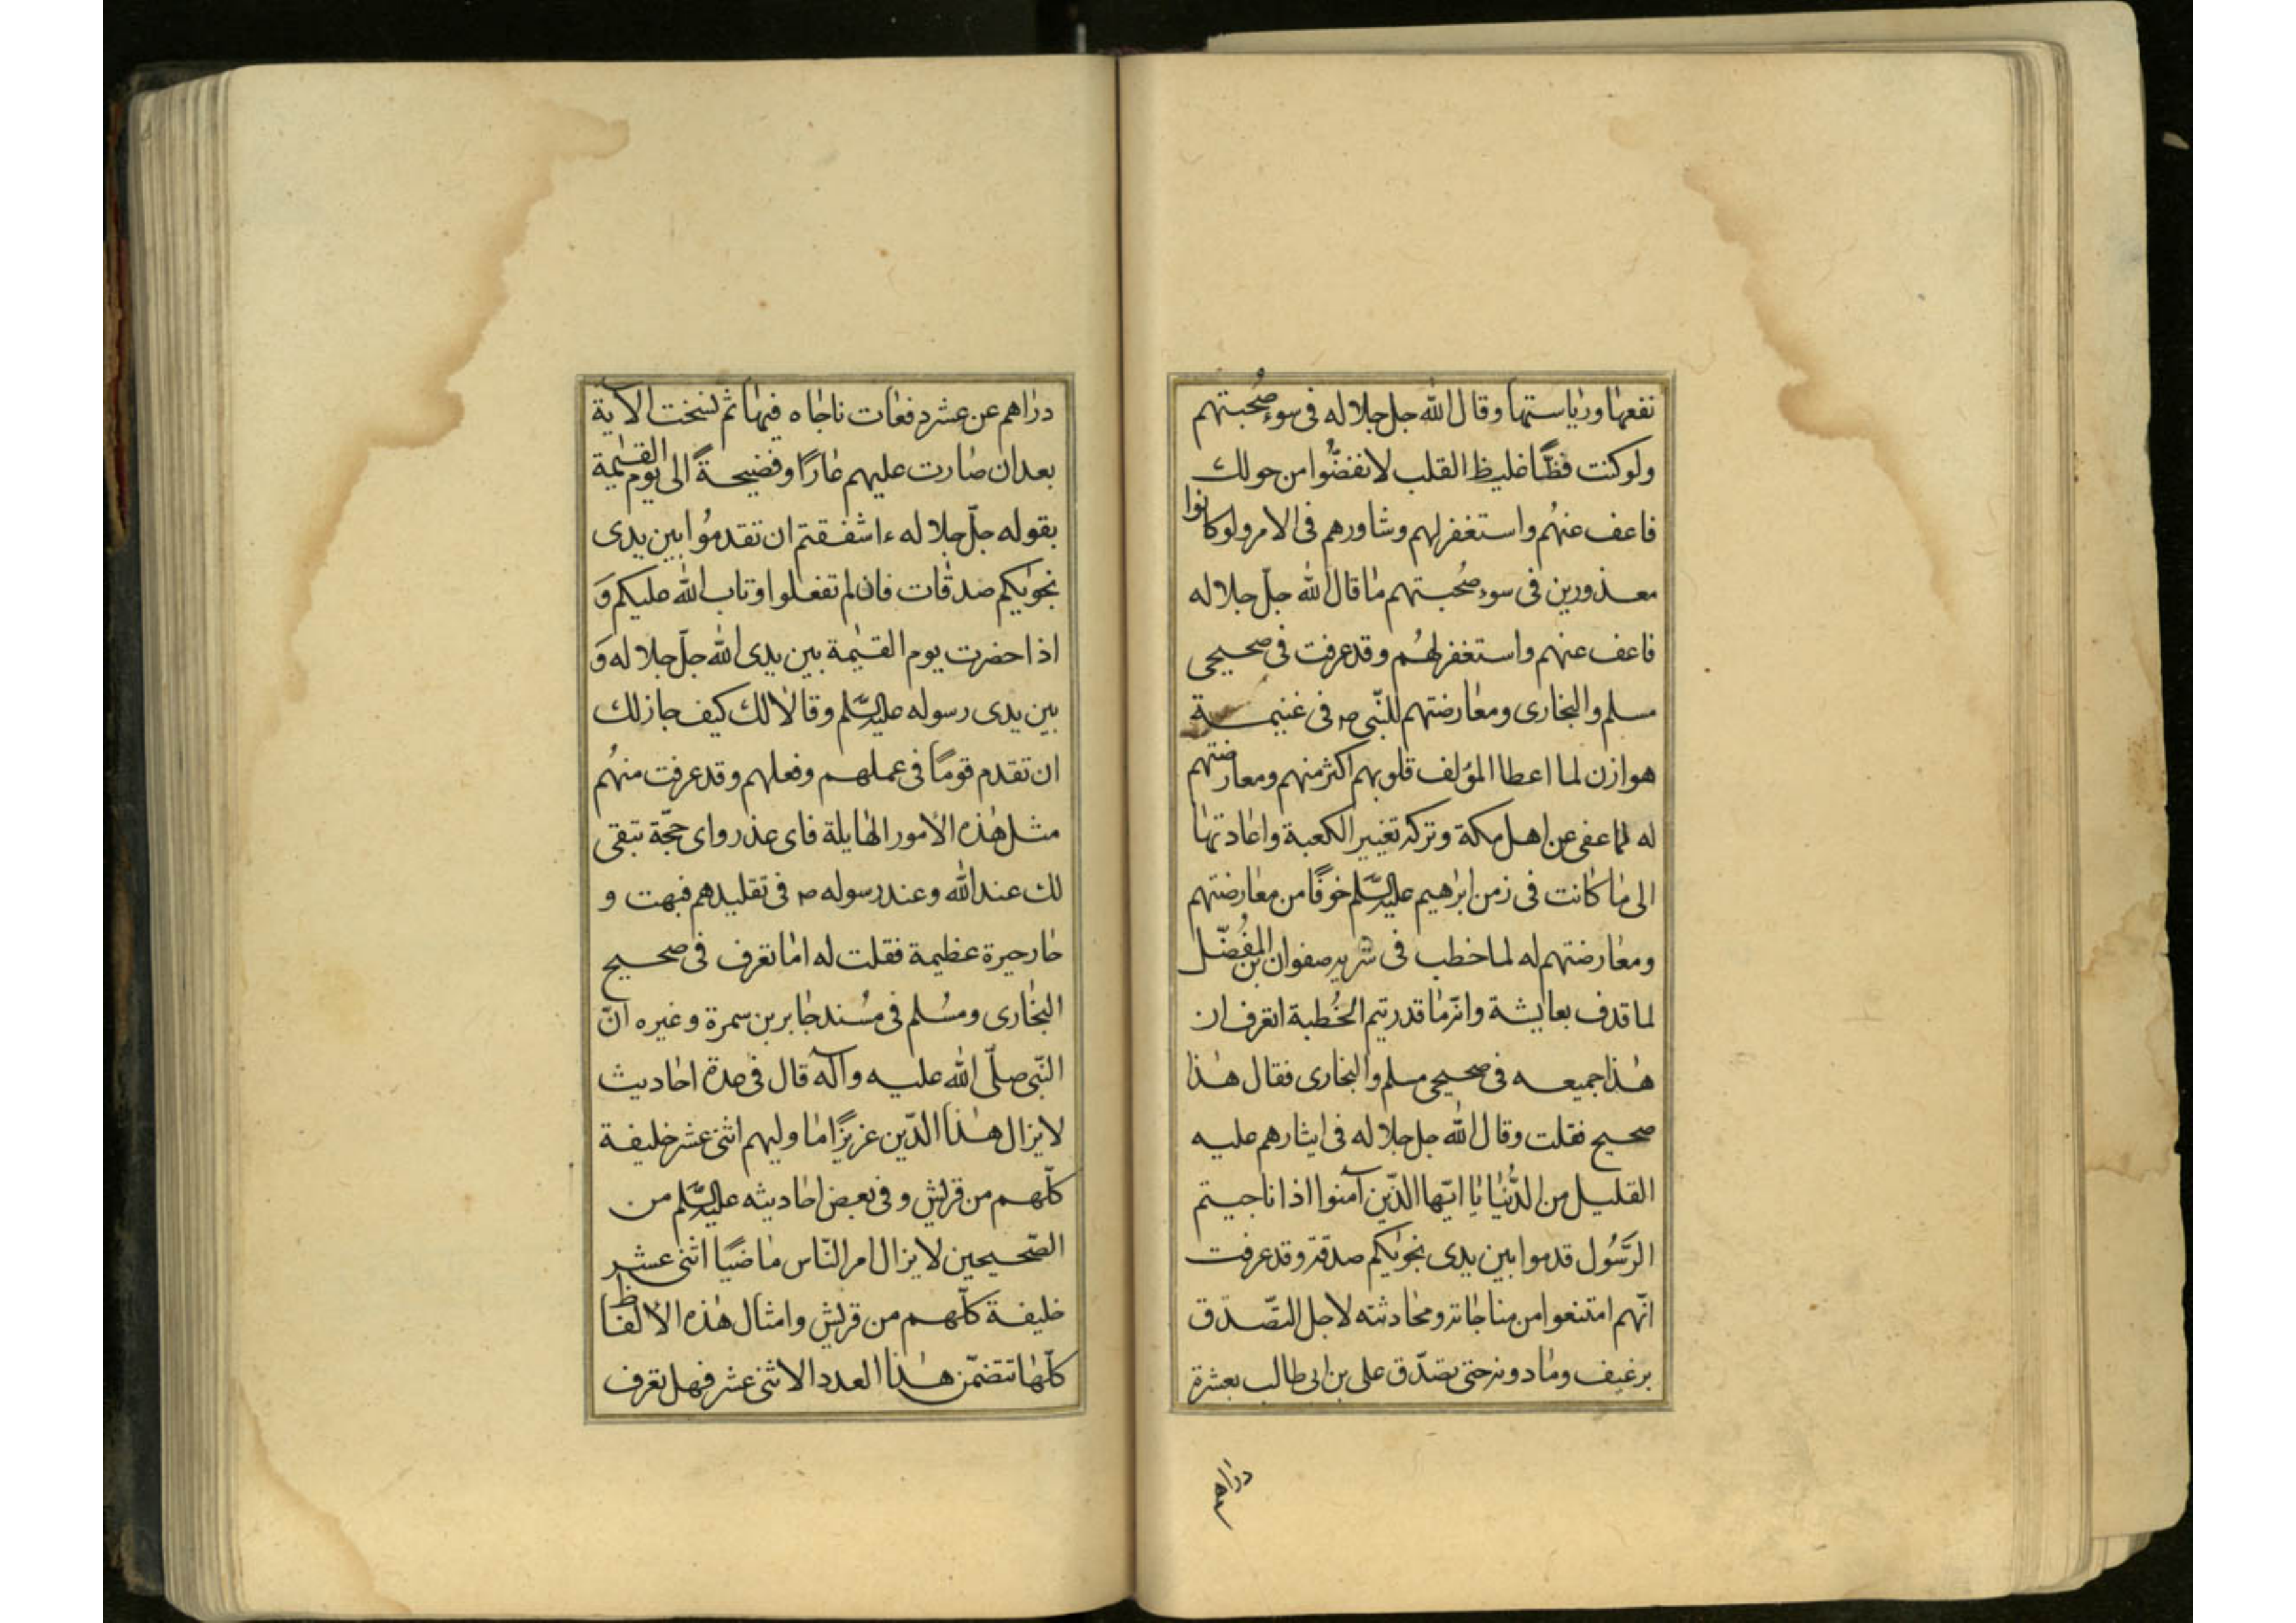 نفعها ورياستها وقال الله جل جلاله فى سوء صُحبتهم
ولو كنت فظًّا غليظ القلب لانفضُّوا من حولك
فاعف عنهُم واستغفر لهم وشاورهم فى الامر ولو كانوا
معذورين فى سوء صُحبتهم ما قال الله جلّ جلاله
فاعف عنهم واستغفر لهُم وقد عرفت فى صحيحى
مسلم والبخارى ومعارضتهم للنّبى ص فى غنيمة
هوازن لما اعطا المؤلف قلوبهم اكثر منهم ومعارضتهم
له لما عفى عن اهل مكة وتركه تغيير الكعبة واعادتها
الى ما كانت فى زمن ابرٰهيم عليه السّلم خوفًا من معارضتهم
ومعارضتهم له لما خطب فى صفوان بن المُفضّل
لما قذف بعايشة وانّه ما قدر يتم الخُطبة اتعرف ان
هٰذا جميعه فى صحيحى مسلم والبخارى فقال هٰذا
صحيح فقلت وقال الله جل جلاله فى ايثارهم عليه
القليل من الدُّنيا يا ايّها الذّين آمنوا اذا ناجيتم
الرَّسُول قدموا بين يدى نجوٰيكم صدقة وقد عرفت
انّهم امتنعوا من مناجاته ومحادثته لاجل التّصدّق
برغيف وما دونه حتى تصدّق على بن ابى طالب بعشرة
دراهم
دراهم عن عشر دفعات ناجاه فيها ثم نسخت الآية
بعد ان صارت عليهم عارًا وفضيحةً الى يوم القيٰمة
بقوله جلّ جلاله ءاشفقتم ان تقدمُوا بين يدى
نجوٰيكم صدقات فان لم تفعلوا وتاب الله عليكم وَ
اذا حضرت يوم القيٰمة بين يدى الله جلّ جلاله وَ
بين يدى رسوله عليه السّلم وقالا لك كيف جاز لك
ان تقدم قومًا فى عملهم وفعلهم وقد عرفت منهُم
مثل هٰذه الأمور الهايلة فاى عذر واى حجّة تبقى
لك عند الله وعند رسوله ص فى تقليدهم فبهت و
حار حيرة عظيمة فقلت له اما تعرف فى صحيح
البخارى ومُسلم فى مُسند جابر بن سمرة وغيره انّ
النّبى صلّى الله عليه وآله قال فى عدة احاديث
لا يزال هٰذا الدّين عزيزًا ما وليهم اثنى عشر خليفة
كلّهم من قريش وفى بعض احاديثه عليه السّلم من
الصّحيحين لا يزال امر النّاس ماضيًا اثنى عشر
خليفة كلّهم من قريش وامثال هٰذه الالفاظ
كلّها تتضمّن هٰذا العدد الاثنى عشر فهل تعرف